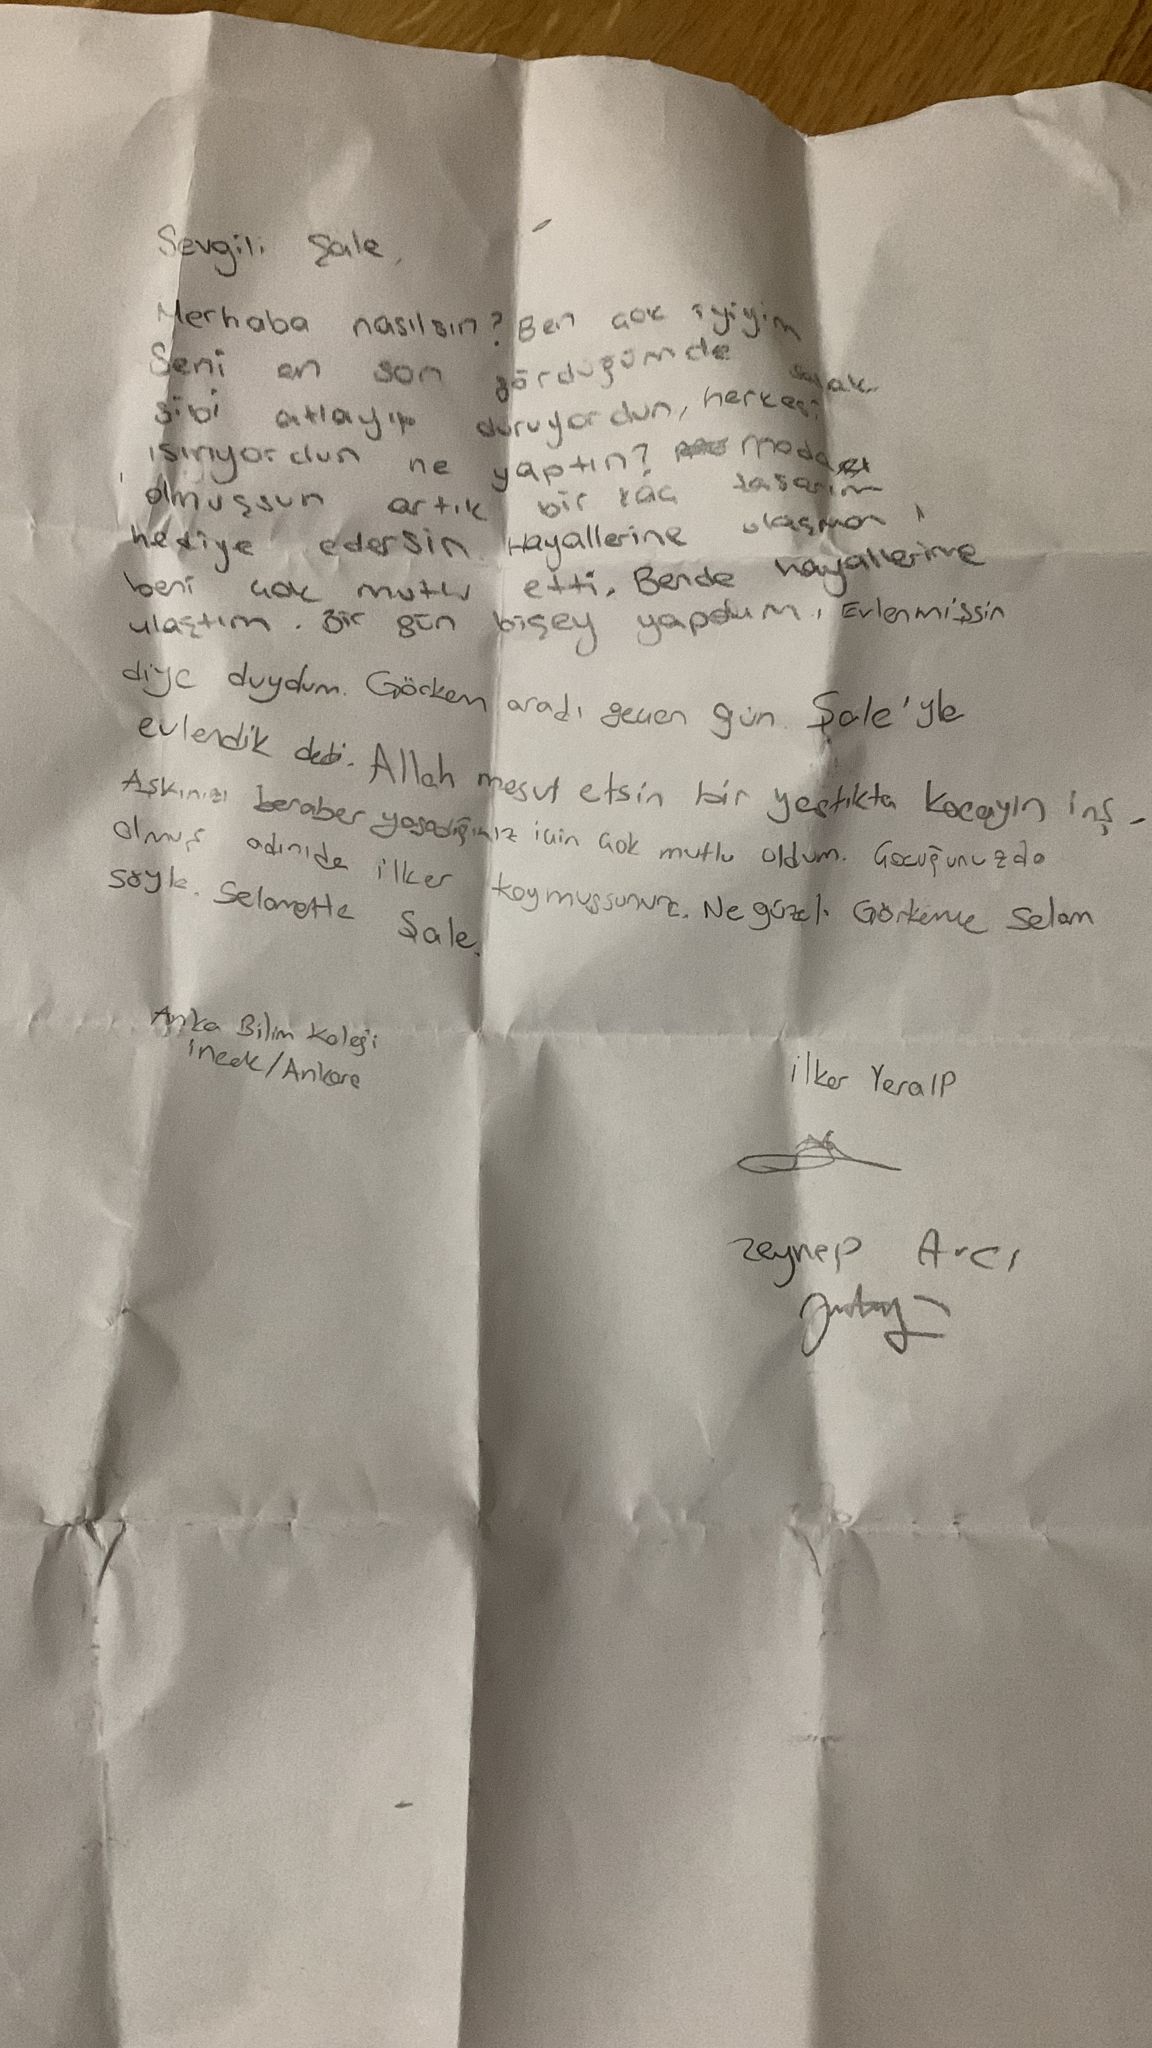 Sevgili Şale,
Merhaba nasılsın? Ben çok iyiyim
Seni en son gördüğümde salak
gibi atlayıp duruyordun, herkesi
ısırıyordun ne yaptın? modacı
olmuşsun artık bir kaç tasarım
hediye edersin. Hayallerine ulaşman
beni çok mutlu etti. Bende hayallerime
ulaştım. Bir gün bişey yapdum. Evlenmişsin
diye duydum. Görkem aradı geçen gün Şale'yle
evlendik dedi. Allah mesut etsin bir yastıkta kocayın inş.
Aşkınızı beraber yaşadığınız için çok mutlu oldum. Çocuğunuzda
olmuş adınıda ilker koymuşsunuz. Ne güzel. Görkeme selam
söyle. Selametle Şale.
Anka Bilim Koleji
incek/Ankara
ilker Yeralp
Zeynep Arcı